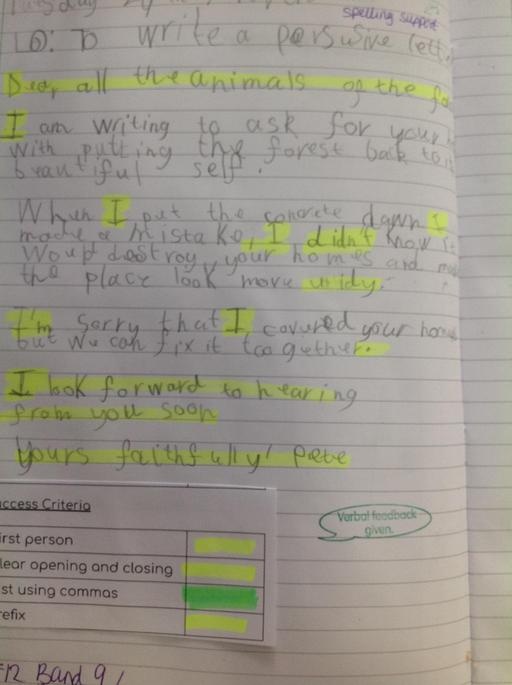 spelling support
LO: To write a persusive lett
Dear all the animals of the fo
I am writing to ask for your
with putting the forest back to
beautiful self.
When I put the concrete down I
made a mistake, I didn't know it
Would destroy your homes and
the place look more untidy.
I'm sorry that I covured your hom
but we can fix it too gether.
I look forward to hearing
from you soon
Yours faithfully' Pete
ccess Criteria
irst person
lear opening and closing
st using commas
refix
Verbal feedback
given.
Band 9